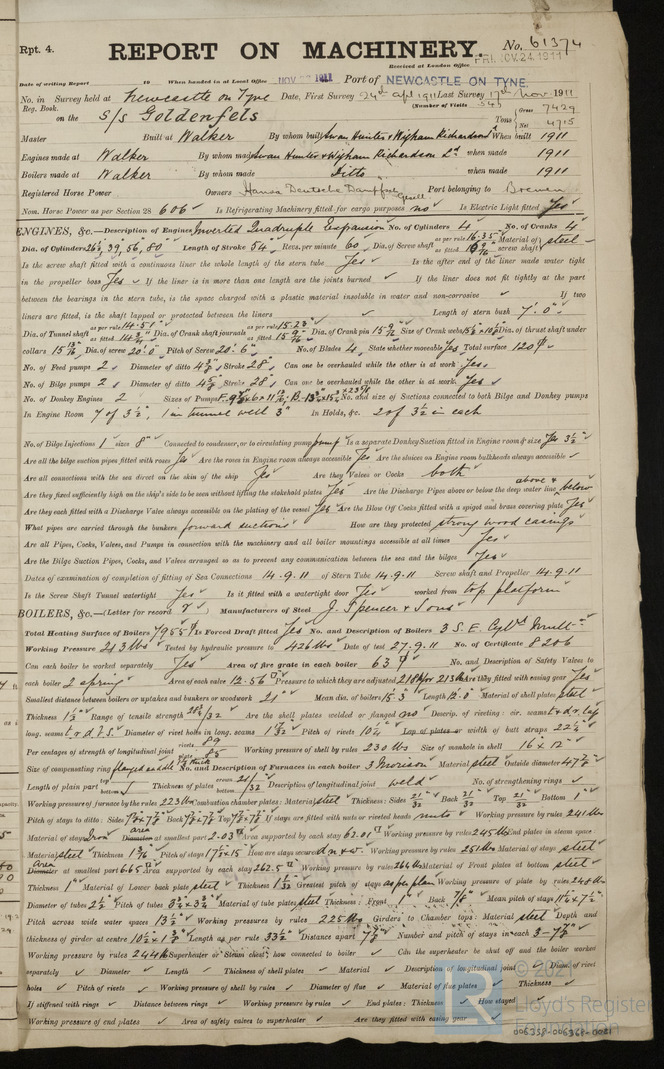 Rpt. 4.
REPORT ON MACHINERY.
No. 61374
Received at London Office
FRI. NOV. 24. 1911
Date of writing Report 19 When handed in at Local Office NOV 1911 Port of NEWCASTLE ON TYNE
No. in Survey held at Newcastle on Tyne Date, First Survey 24th Apl 1911 Last Survey 17th Nov 1911
Reg. Book. (Number of Visits 54)
on the S/S Goldenfels Tons Gross 7429
Net 4715
Master Built at Walker By whom built Swan Hunter & Wigham Richardson Ld When built 1911
Engines made at Walker By whom made Swan Hunter & Wigham Richardson Ld when made 1911
Boilers made at Walker By whom made Ditto when made 1911
Registered Horse Power Owners Hansa Deutsche Dampfsch Gesell Port belonging to Bremen
Nom. Horse Power as per Section 28 606 Is Refrigerating Machinery fitted for cargo purposes no Is Electric Light fitted Yes
ENGINES, &c.—Description of Engines Inverted Quadruple Expansion No. of Cylinders 4 No. of Cranks 4
Dia. of Cylinders 26½, 39, 56, 80 Length of Stroke 54 Revs. per minute 60 Dia. of Screw shaft as per rule 16.35 as fitted Material of screw shaft steel
Is the screw shaft fitted with a continuous liner the whole length of the stern tube Yes Is the after end of the liner made water tight
in the propeller boss Yes If the liner is in more than one length are the joints burned If the liner does not fit tightly at the part
between the bearings in the stern tube, is the space charged with a plastic material insoluble in water and non-corrosive If two
liners are fitted, is the shaft lapped or protected between the liners Length of stern bush 7'.0"
Dia. of Tunnel shaft as per rule 14.51 as fitted Dia. of Crank shaft journals as per rule 15.23 as fitted Dia. of Crank pin Size of Crank webs Dia. of thrust shaft under
collars Dia. of screw 20'.0 Pitch of Screw 20'.6" No. of Blades 4 State whether moveable Yes Total surface 120
No. of Feed pumps 2 Diameter of ditto Stroke 28 Can one be overhauled while the other is at work Yes
No. of Bilge pumps 2 Diameter of ditto Stroke 28 Can one be overhauled while the other is at work Yes
No. of Donkey Engines 2 Sizes of Pumps No. and size of Suctions connected to both Bilge and Donkey pumps
In Engine Room 7 of 3½, 1 in tunnel well 3" In Holds, &c. 2 of 3½ in each
No. of Bilge Injections 1 sizes 8" Connected to condenser, or to circulating pump pump Is a separate Donkey Suction fitted in Engine room & size Yes 3½"
Are all the bilge suction pipes fitted with roses Yes Are the roses in Engine room always accessible Yes Are the sluices on Engine room bulkheads always accessible
Are all connections with the sea direct on the skin of the ship Yes Are they Valves or Cocks both
Are they fixed sufficiently high on the ship's side to be seen without lifting the stokehold plates Yes Are the Discharge Pipes above or below the deep water line above & below
Are they each fitted with a Discharge Valve always accessible on the plating of the vessel Yes Are the Blow Off Cocks fitted with a spigot and brass covering plate Yes
What pipes are carried through the bunkers forward suctions How are they protected strong wood casings
Are all Pipes, Cocks, Valves, and Pumps in connection with the machinery and all boiler mountings accessible at all times Yes
Are the Bilge Suction Pipes, Cocks, and Valves arranged so as to prevent any communication between the sea and the bilges Yes
Dates of examination of completion of fitting of Sea Connections 14.9.11 of Stern Tube 14.9.11 Screw shaft and Propeller 14.9.11
Is the Screw Shaft Tunnel watertight Yes Is it fitted with a watertight door Yes worked from top platform
BOILERS, &c.—(Letter for record ) Manufacturers of Steel J. Spencer & Sons
Total Heating Surface of Boilers 7955 Is Forced Draft fitted Yes No. and Description of Boilers 3 S. E. Cyl. Mult
Working Pressure 213 lbs Tested by hydraulic pressure to 426 lbs Date of test 27.9.11 No. of Certificate 8206
Can each boiler be worked separately Yes Area of fire grate in each boiler 63 No. and Description of Safety Valves to
each boiler 2 spring Area of each valve 12.56 Pressure to which they are adjusted 218 lbs for 213 lbs Are they fitted with easing gear Yes
Smallest distance between boilers or uptakes and bunkers or woodwork 21" Mean dia. of boilers 15'.3 Length 12'.0" Material of shell plates steel
Thickness Range of tensile strength Are the shell plates welded or flanged no Descrip. of riveting: cir. seams t & d.r. lap
long. seams t.r.d.b.s. Diameter of rivet holes in long. seams Pitch of rivets Lap of plates or width of butt straps 22¼
Per centages of strength of longitudinal joint rivets 89 plate 85 Working pressure of shell by rules 230 lbs Size of manhole in shell 16 x 12"
Size of compensating ring flanged No. and Description of Furnaces in each boiler 3 Morison Material steel Outside diameter 47½
Length of plain part top bottom Thickness of plates crown bottom Description of longitudinal joint weld No. of strengthening rings
Working pressure of furnace by the rules 223 lbs Combustion chamber plates: Material steel Thickness: Sides 21/32 Back 21/32 Top 21/32 Bottom 1"
Pitch of stays to ditto: Sides Back Top If stays are fitted with nuts or riveted heads nuts Working pressure by rules 241 lbs
Material of stays Iron area Diameter at smallest part 2.03 Area supported by each stay 62.01 Working pressure by rules 245 lbs End plates in steam space:
Material steel Thickness Pitch of stays How are stays secured d.n & w. Working pressure by rules 251 lbs Material of stays steel
Area Diameter at smallest part 6.65 Area supported by each stay 262.5 Working pressure by rules 264 lbs Material of Front plates at bottom steel
Thickness 1" Material of Lower back plate steel Thickness Greatest pitch of stays as per plan Working pressure of plate by rules 248 lbs
Diameter of tubes 2½ Pitch of tubes Material of tube plates steel Thickness: Front 1" Back Mean pitch of stays
Pitch across wide water spaces 13½ Working pressures by rules 225 lbs Girders to Chamber tops: Material steel Depth and
thickness of girder at centre Length as per rule 33½ Distance apart 7½ Number and pitch of stays in each 3 - 7½
Working pressure by rules 244 lbs Superheater or Steam chest; how connected to boiler Can the superheater be shut off and the boiler worked
separately Diameter Length Thickness of shell plates Material Description of longitudinal joint Diam. of rivet
holes Pitch of rivets Working pressure of shell by rules Diameter of flue Material of flue plates Thickness
If stiffened with rings Distance between rings Working pressure by rules End plates: Thickness How stayed
Working pressure of end plates Area of safety valves to superheater Are they fitted with easing gear
© 2021
Lloyd's Register
Foundation
006358-006368-0021